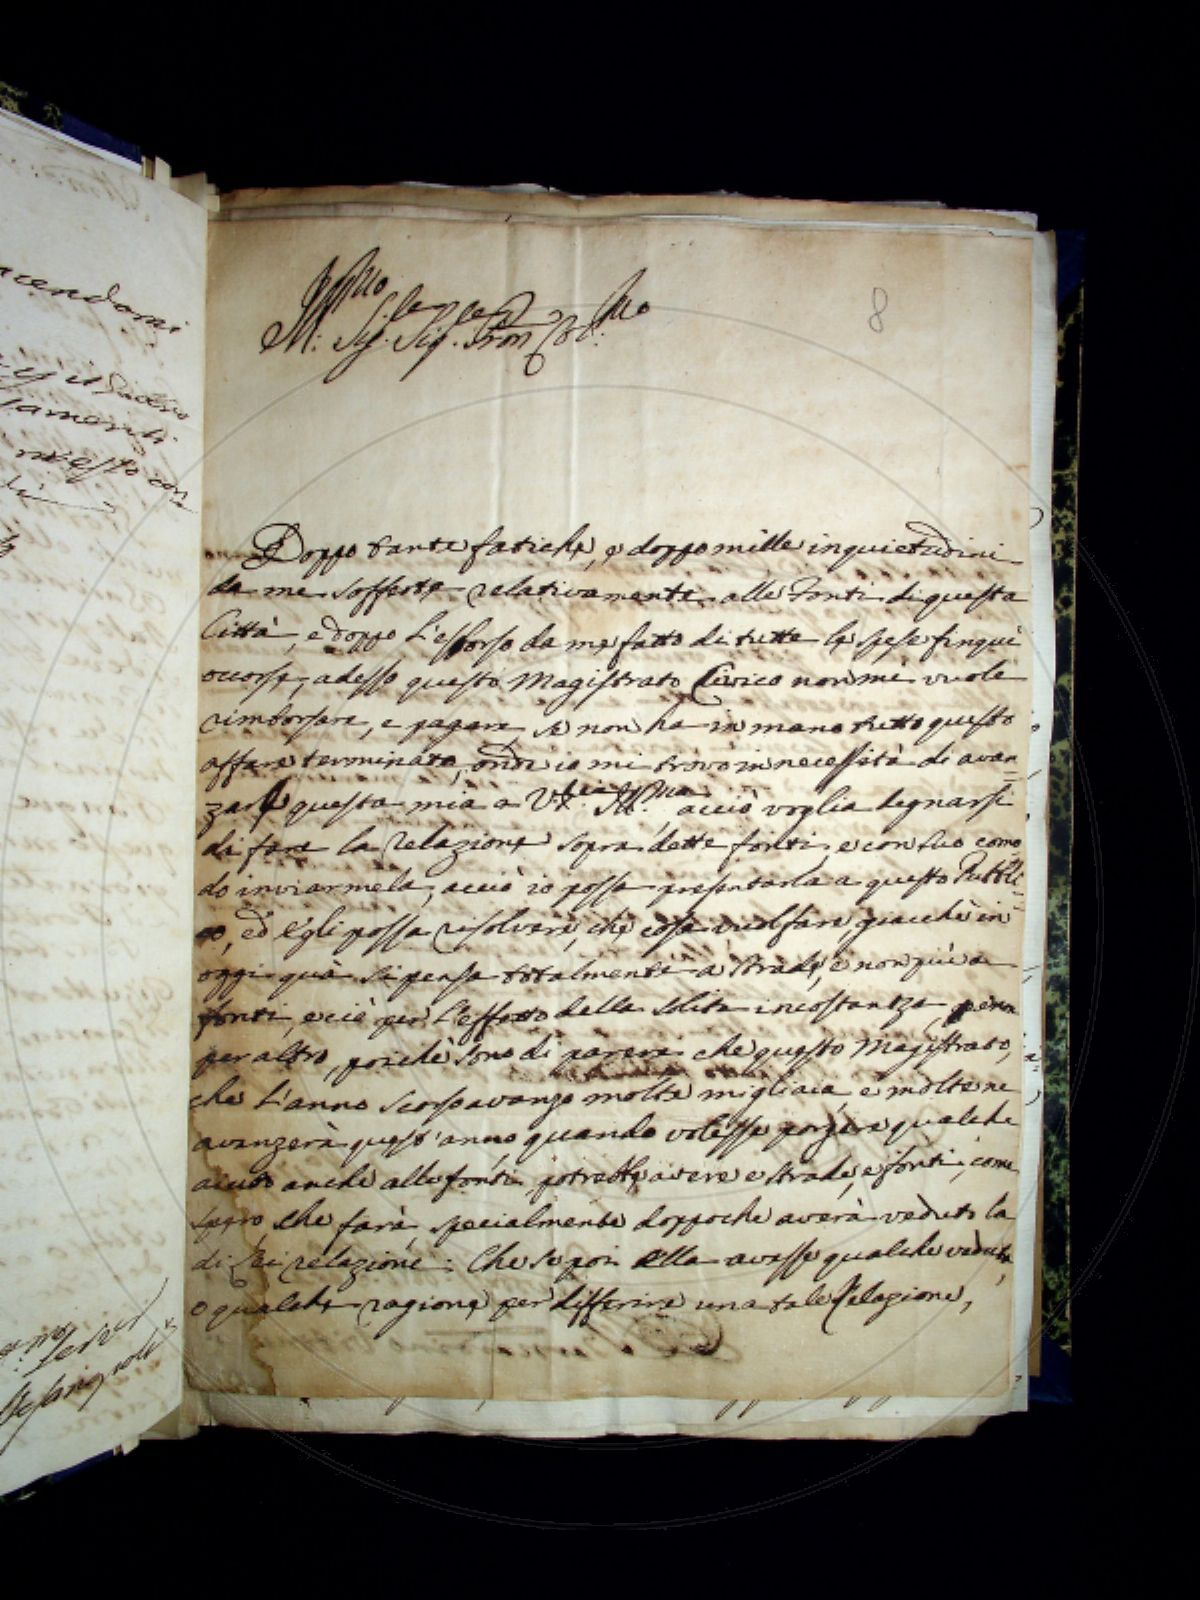 8
Ill.mo
Sig. Sig. Pron Col.mo
Doppo tante fatiche, e doppo mille inquietudini
da me sofferte relativamente alle Fonti di questa
Città, e doppo l'esborso da me fatto di tutte le spese finquì
occorse, adesso questo Magistrato Civico non mi vuole
rimborsare, e pagare, se non ha in mano tutto questo
affare terminato, onde io mi trovo in necessità di avan
zare questa mia a V.ria Ill.ma, acciò voglia degnarsi
di fare la relazione sopra dette fonti, e con suo como
do inviarmela, acciò io possa presentarla a questo Pubbli
co, ed egli possa risolvere, che cosa vuol fare, giacchè in
oggi quà si pensa totalmente a strade, e non più a
fonti, e ciò per l'effetto della solita incostanza,
per altro, poichè sono di parere che questo Magistrato,
che l'anno scorso avanzo molte migliaia, e molte ne
avanzerà quest'anno, quando volesse porgere qualche
aiuto anche alle fonti, potrebbe avere e strade, e fonti, come
spero che farà, specialmente doppoche averà veduto la
di Lei relazione: Che se poi Ella avesse qualche veduta,
o qualche ragione per differire una tale relazione,